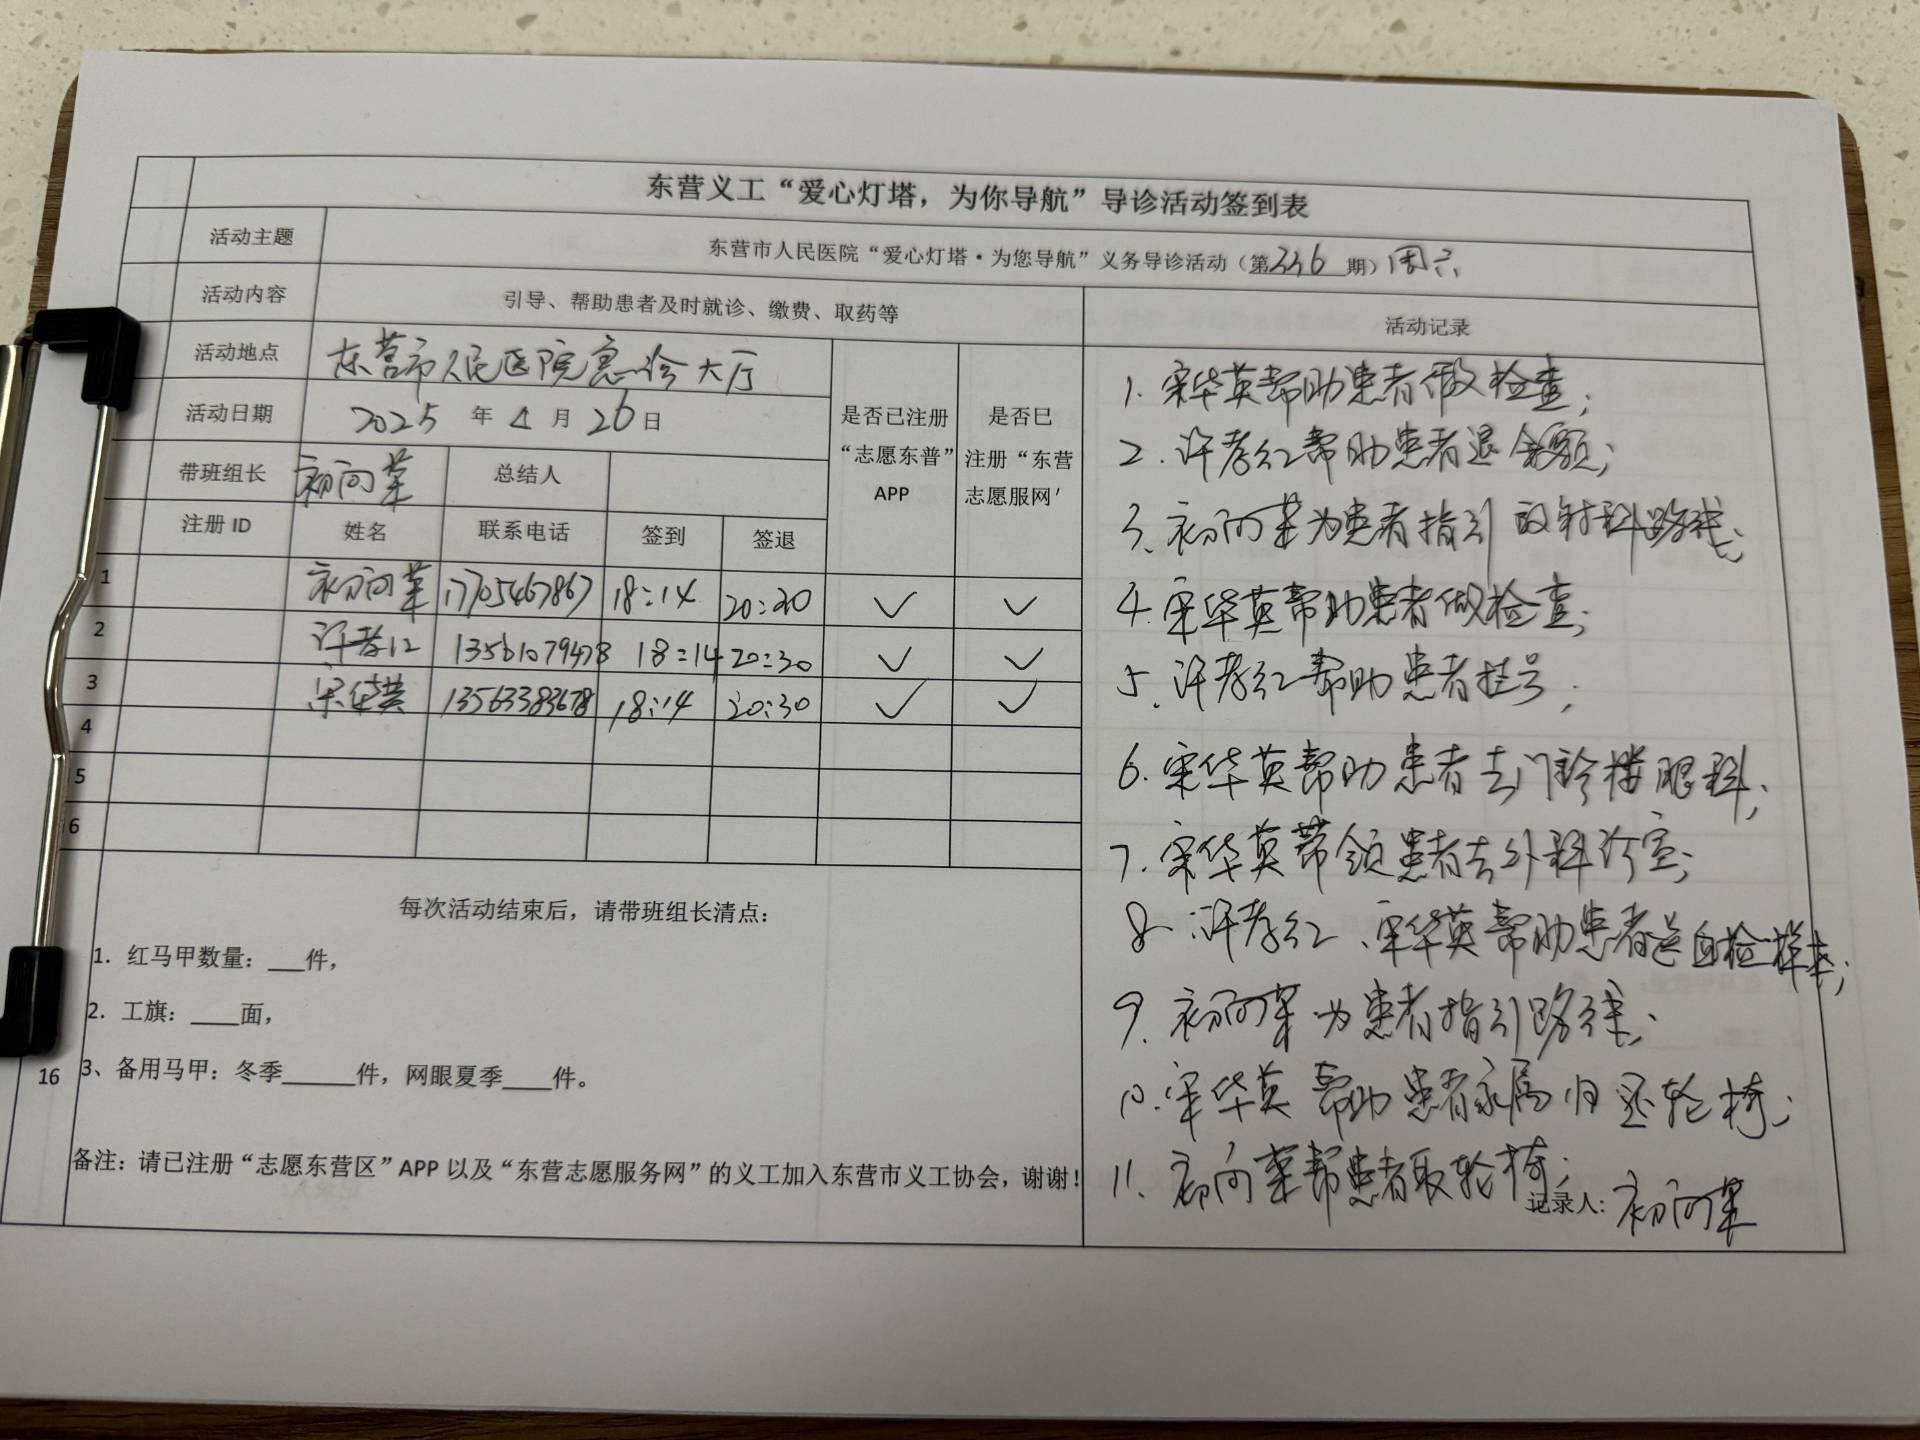 东营义工“爱心灯塔，为你导航”导诊活动签到表
活动主题 东营市人民医院“爱心灯塔·为您导航”义务导诊活动（第336期）周六
活动内容 引导、帮助患者及时就诊、缴费、取药等 活动记录
活动地点 东营市人民医院急诊大厅
活动日期 2025年4月26日
是否已注册“志愿东普”APP
是否巳注册“东营志愿服网'
带班组长 初向荣 总结人
注册 ID 姓名 联系电话 签到 签退
1 初向荣 17705467867 18:14 20:30 ✓ ✓
2 许孝红 13561079478 18:14 20:30 ✓ ✓
3 宋华英 13563383678 18:14 20:30 ✓ ✓
4
5
6
每次活动结束后，请带班组长清点：
1. 红马甲数量：___件，
2. 工旗：____面，
3、备用马甲：冬季______件，网眼夏季____件。
16
备注：请已注册“志愿东营区”APP 以及“东营志愿服务网”的义工加入东营市义工协会，谢谢！
1. 宋华英帮助患者做检查；
2. 许孝红帮助患者退余额；
3、初向荣为患者指引放射科路线；
4. 宋华英帮助患者做检查；
5. 许孝红帮助患者挂号；
6. 宋华英帮助患者去门诊楼眼科；
7. 宋华英带领患者去外科诊室；
8. 许孝红、宋华英帮助患者送血检样本；
9. 初向荣为患者指引路线；
10. 宋华英帮助患者家属归还轮椅；
11. 初向荣帮患者取轮椅；
记录人：初向荣